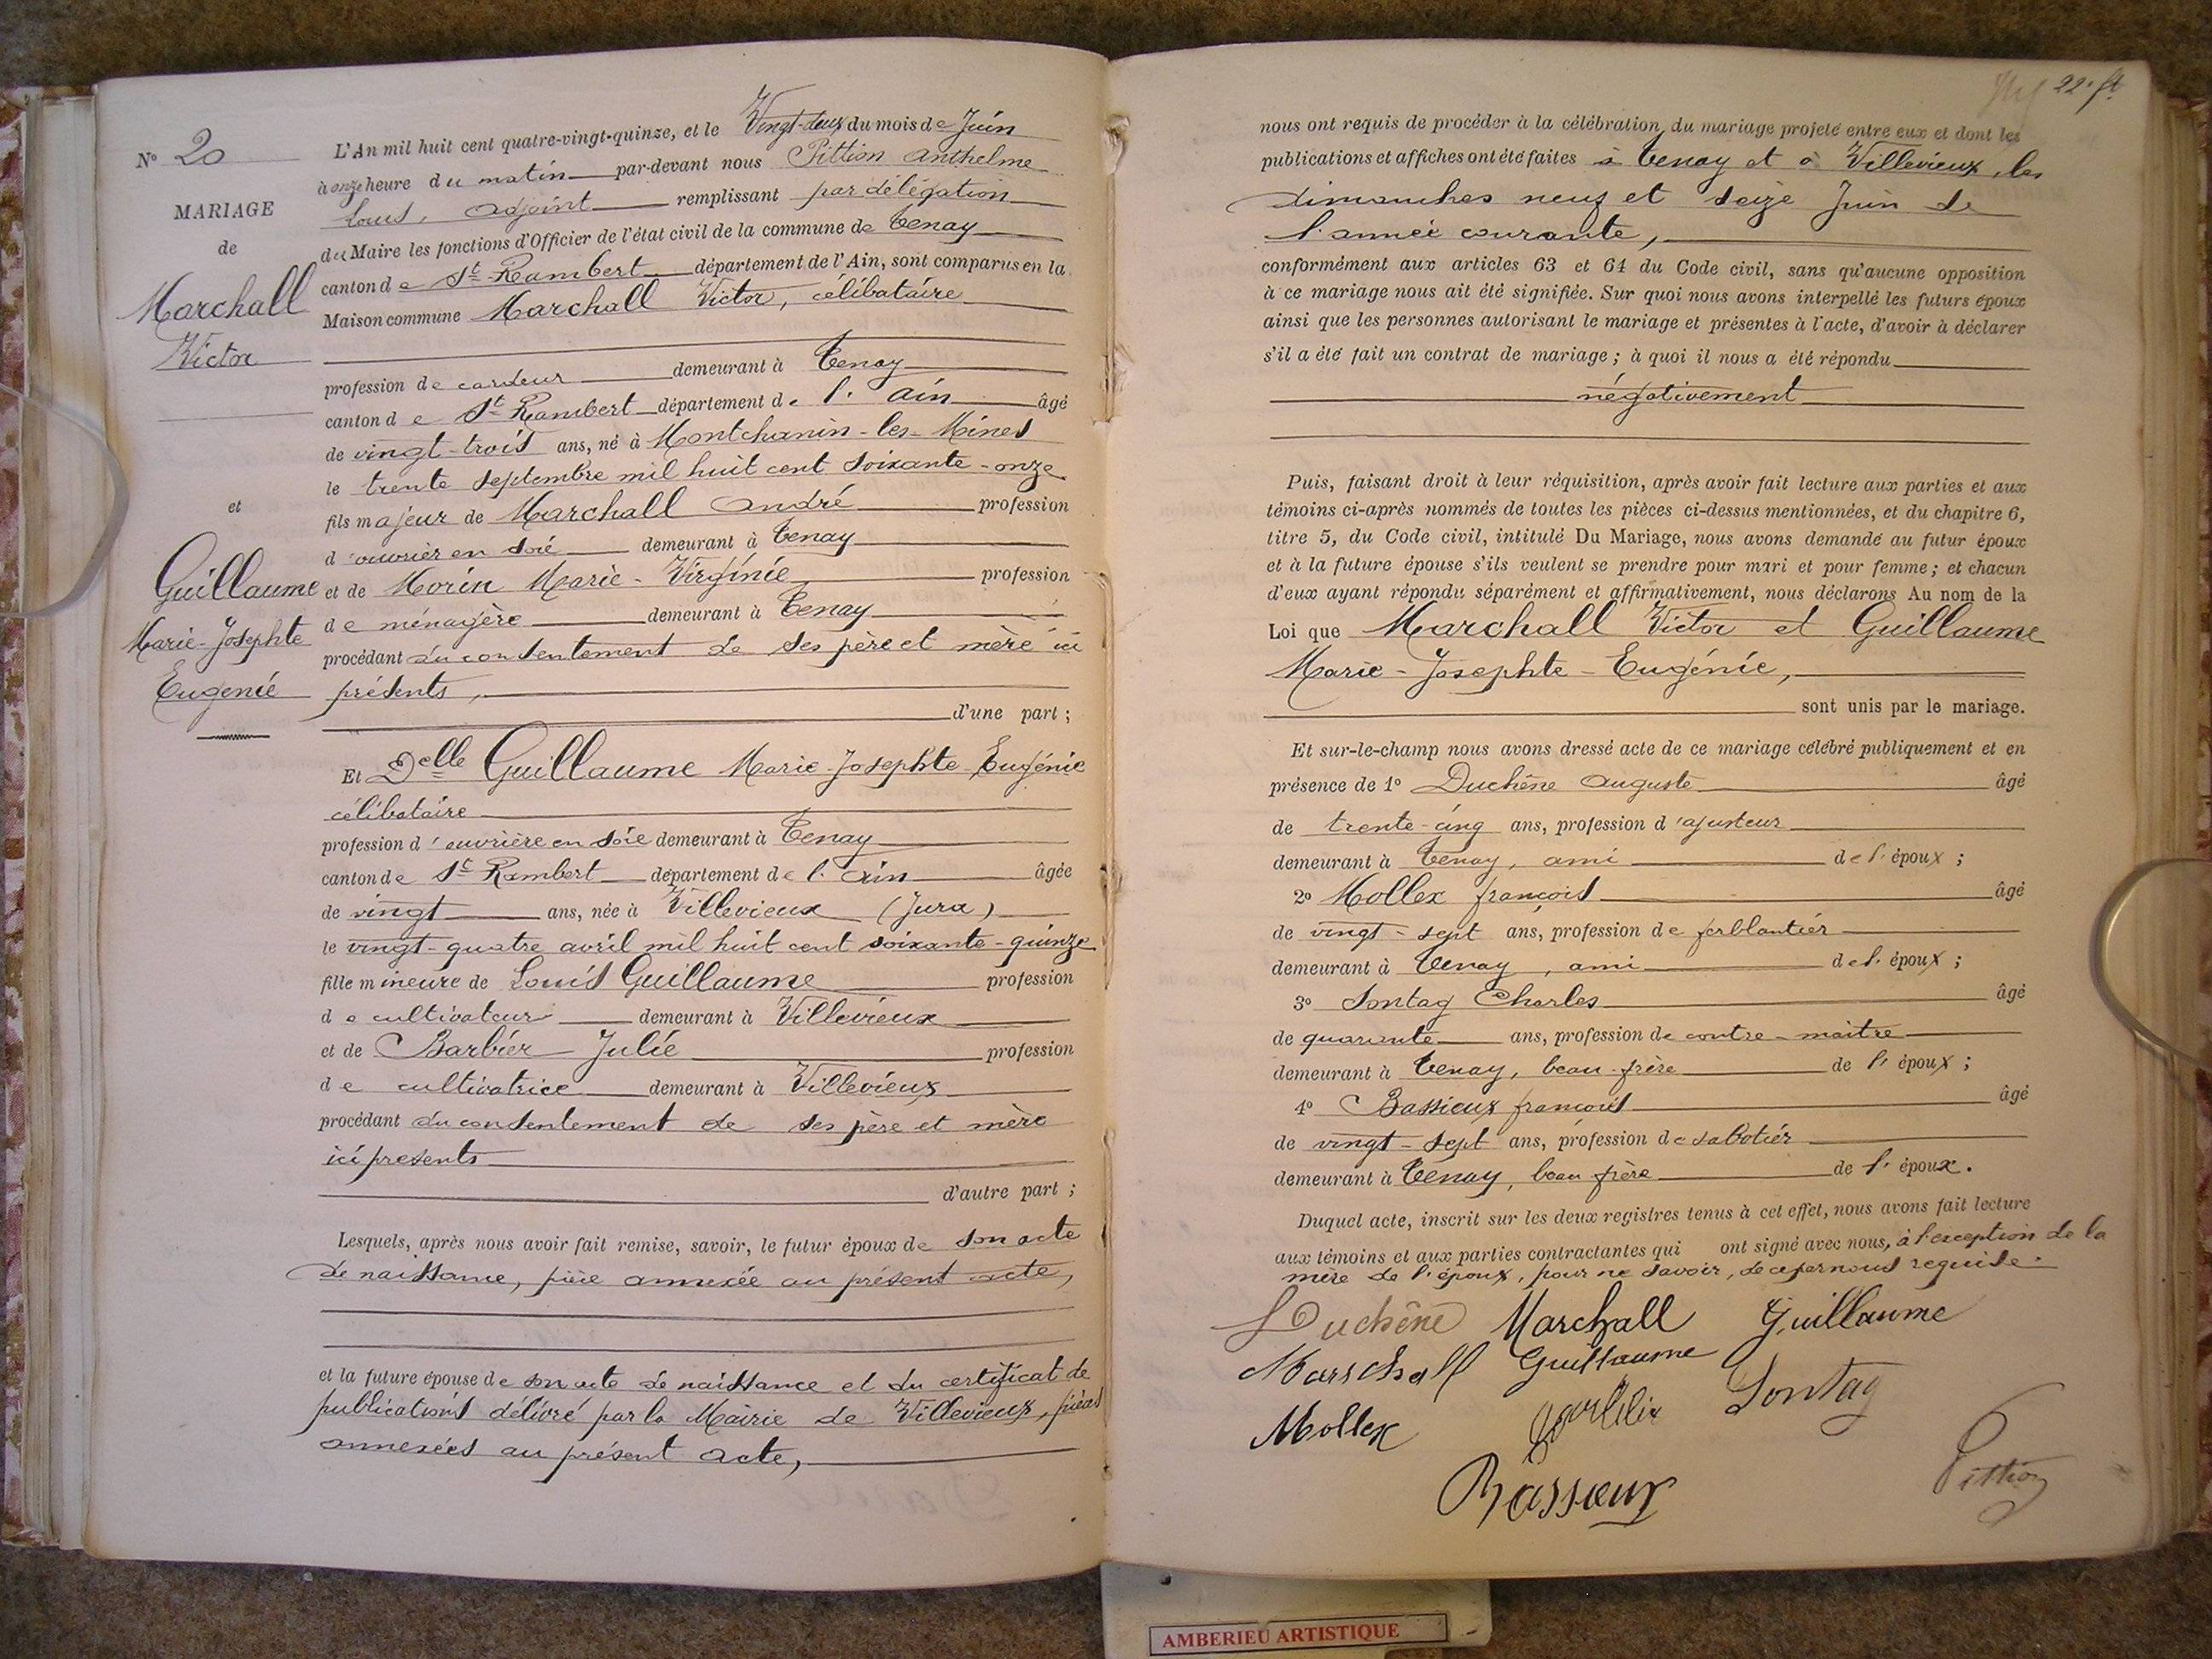 Nº 20
MARIAGE
de
Marchall
Victor
et
Guillaume
Marie-Josephte
Eugénie
L'An mil huit cent quatre-vingt-quinze, et le Vingt-deux du mois de Juin
à onze heure du matin par-devant nous Pittion Anthelme
Louis, adjoint remplissant par délégation
du Maire les fonctions d'Officier de l'état civil de la commune de Tenay
canton de St Rambert département de l'Ain, sont comparus en la
Maison commune Marchall Victor, célibataire
profession de cardeur demeurant à Tenay
canton de St Rambert département de l'Ain âgé
de vingt-trois ans, né à Montchanin-les-Mines
le trente septembre mil huit cent soixante-onze
fils majeur de Marchall André profession
d'ouvrier en soie demeurant à Tenay
et de Morin Marie-Virginie profession
de ménagère demeurant à Tenay
procédant du consentement de ses père et mère ici
présents,
d'une part ;
Et Delle Guillaume Marie-Josephte-Eugénie
célibataire
profession d'ouvrière en soie demeurant à Tenay
canton de St Rambert département de l'Ain âgée
de vingt ans, née à Villevieux (Jura)
le vingt-quatre avril mil huit cent soixante-quinze
fille mineure de Louis Guillaume profession
de cultivateur demeurant à Villevieux
et de Barbier Julie profession
de cultivatrice demeurant à Villevieux
procédant du consentement de ses père et mère
ici présents
d'autre part ;
Lesquels, après nous avoir fait remise, savoir, le futur époux de son acte
de naissance, pièce annexée au présent acte,
et la future épouse de son acte de naissance et du certificat de
publications délivré par la Mairie de Villevieux, pièces
annexées au présent acte,
22. ft
nous ont requis de procéder à la célébration du mariage projeté entre eux et dont les
publications et affiches ont été faites à Tenay et à Villevieux, les
dimanches neuf et seize Juin de
l'année courante,
conformément aux articles 63 et 64 du Code civil, sans qu'aucune opposition
à ce mariage nous ait été signifiée. Sur quoi nous avons interpellé les futurs époux
ainsi que les personnes autorisant le mariage et présentes à l'acte, d'avoir à déclarer
s'il a été fait un contrat de mariage ; à quoi il nous a été répondu
négativement
Puis, faisant droit à leur réquisition, après avoir fait lecture aux parties et aux
témoins ci-après nommés de toutes les pièces ci-dessus mentionnées, et du chapitre 6,
titre 5, du Code civil, intitulé Du Mariage, nous avons demandé au futur époux
et à la future épouse s'ils veulent se prendre pour mari et pour femme ; et chacun
d'eux ayant répondu séparément et affirmativement, nous déclarons Au nom de la
Loi que Marchall Victor et Guillaume
Marie-Josephte-Eugénie,
sont unis par le mariage.
Et sur-le-champ nous avons dressé acte de ce mariage célébré publiquement et en
présence de 1º Duchêne Auguste âgé
de trente-cinq ans, profession d'ajusteur
demeurant à Tenay, ami de l'époux ;
2º Mollex françois âgé
de vingt-sept ans, profession de ferblantier
demeurant à Tenay, ami de l'époux ;
3º Sontag Charles âgé
de quarante ans, profession de contre-maître
demeurant à Tenay, beau-frère de l'époux ;
4º Bassieux françois âgé
de vingt-sept ans, profession de sabotier
demeurant à Tenay, beau frère de l'époux.
Duquel acte, inscrit sur les deux registres tenus à cet effet, nous avons fait lecture
aux témoins et aux parties contractantes qui ont signé avec nous, à l'exception de la
mère de l'époux, pour ne savoir, de ce par nous requise.
Duchêne Marchall Guillaume
Marschall Guillaume
Mollex Sontag
Bassieux Pittion
AMBERIEU ARTISTIQUE